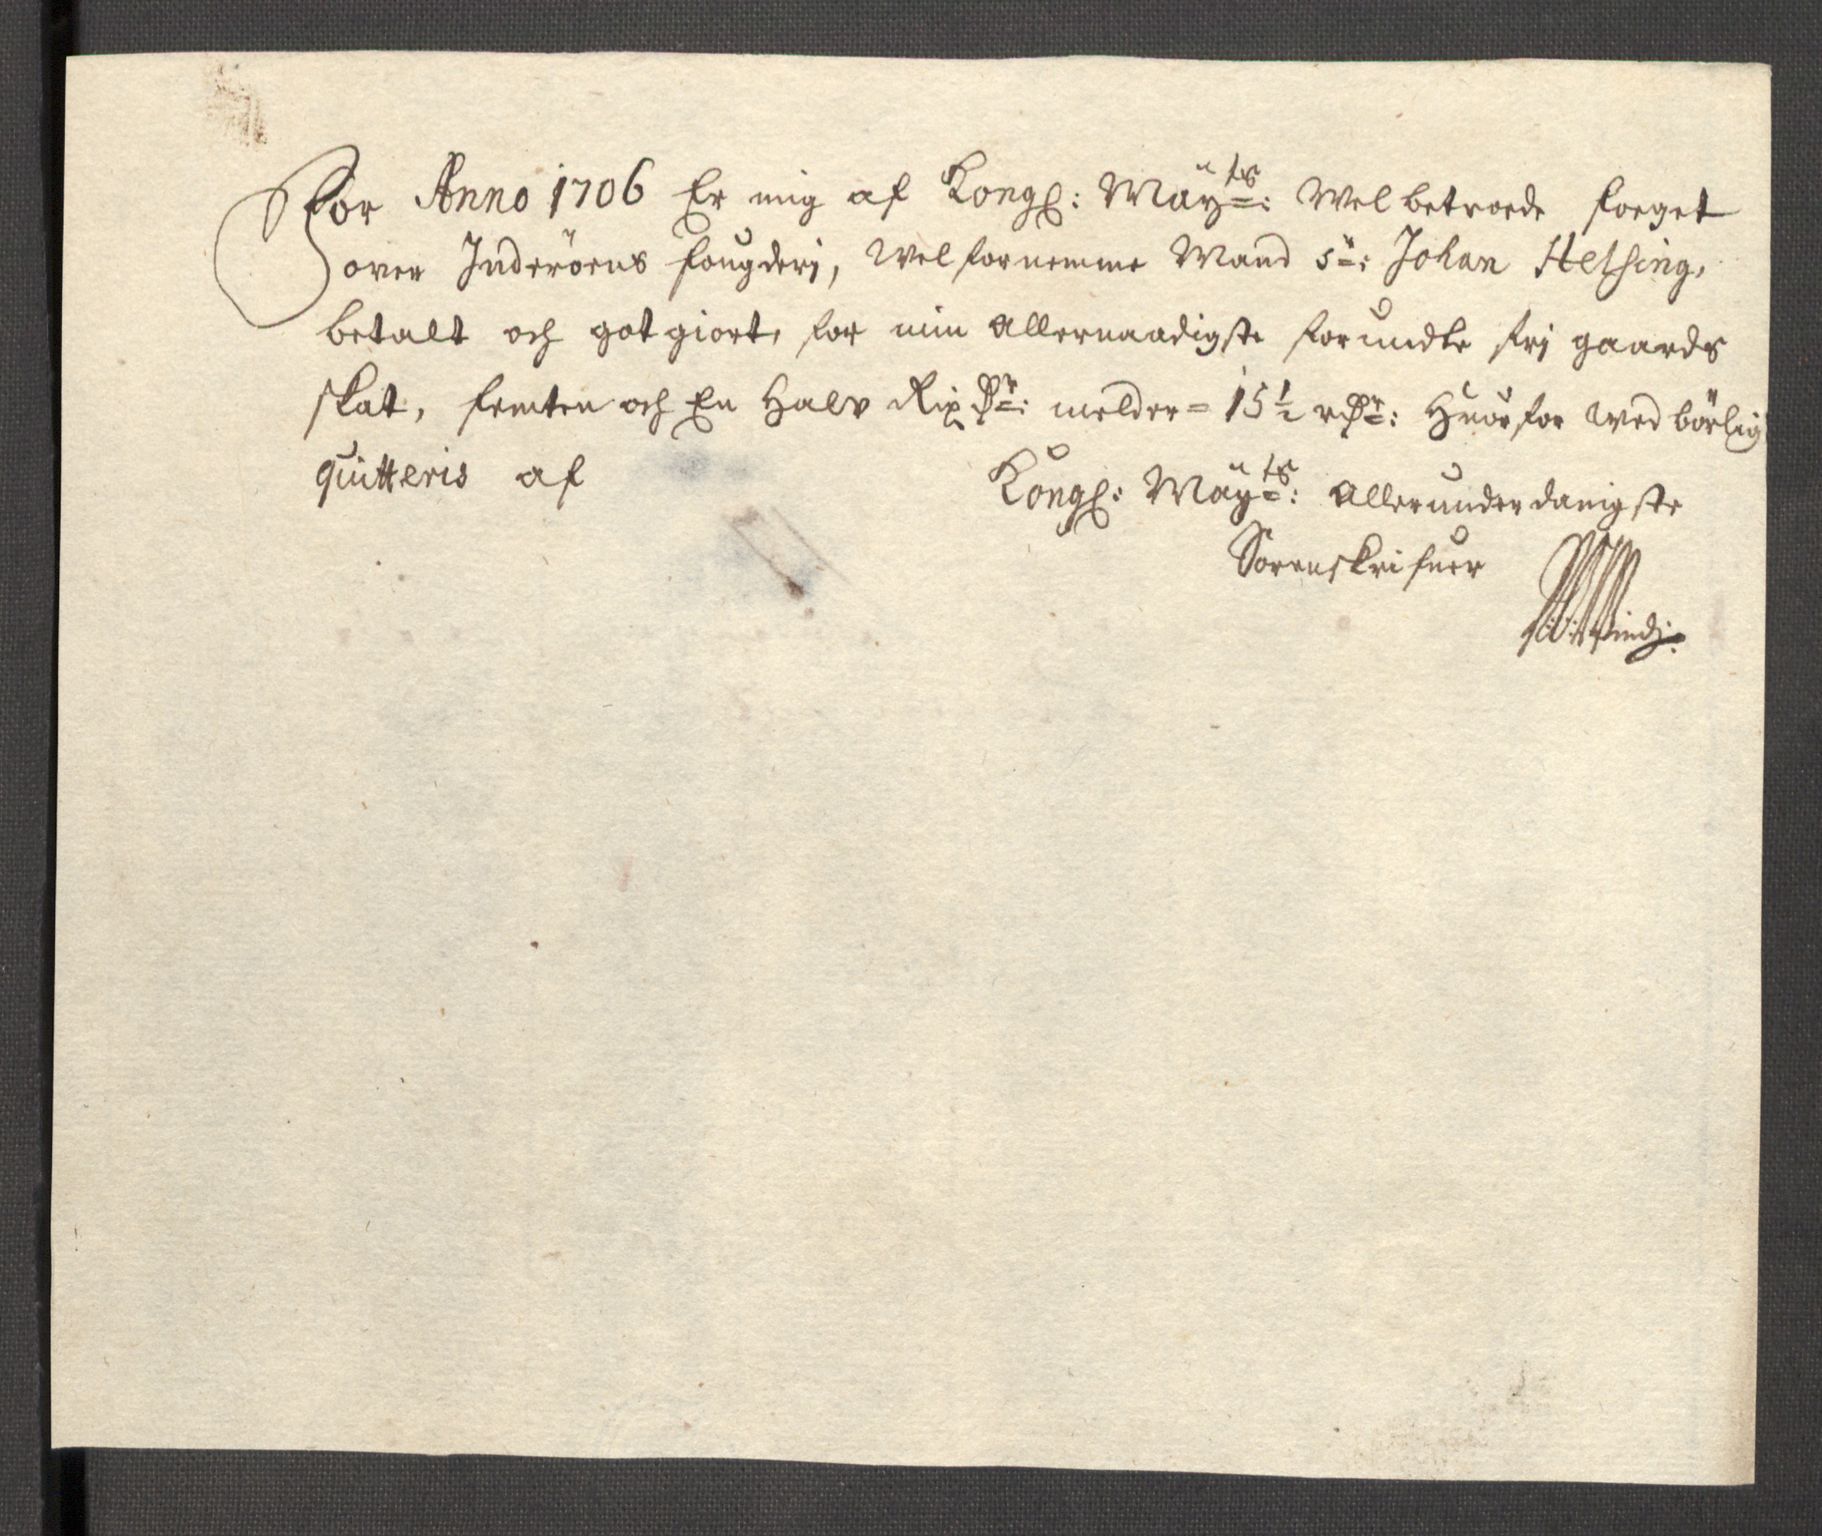 For Anno 1706 Er mig af Kongl: Mäy:ts: Welbetroede foeget
over Inderöens fougderj, Welfornemme Mand Sr: Johan Helsing,
betalt och gotgiort, for min Allernaadigste forundte frj gaards
skat, femten och En Halv Rixdr: melder = 15½ rdr: Huorfor wed börlig
quitteris af
Kongl: Mäy:ts: Allerunderdanigste
Sorenskrifuer